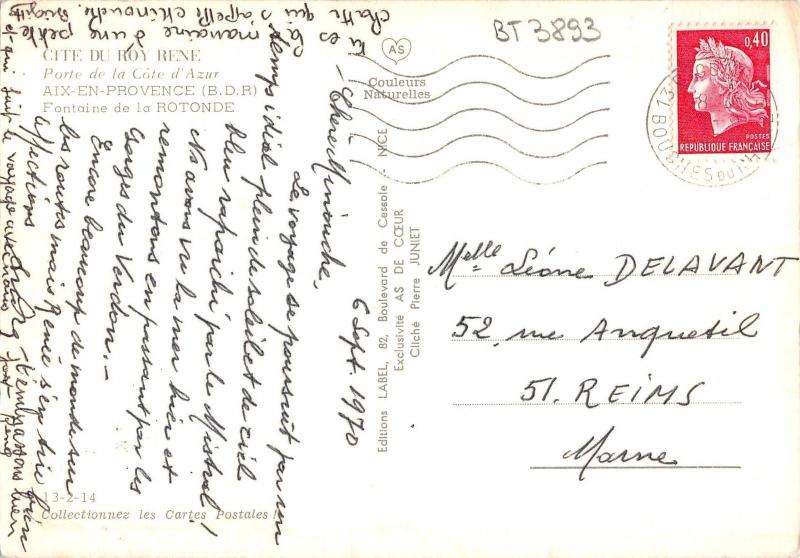 BT3893
CITE DU ROY RENE
Porte de la Côte d'Azur
AIX-EN-PROVENCE (B.D.R)
Fontaine de la ROTONDE
AS
Couleurs
Naturelles
0,40
POSTES
REPUBLIQUE FRANÇAISE
BOUCHES DU
6 Sept. 1970
- Chère Minouche,
Le voyage se poursuit par un
temps idéal plein de soleil et de ciel
bleu rafraichi par le Mistral!
Ns avons vu la mer hier et
remontons en passant par les
Gorges du Verdon. -
Encore beaucoup de monde sur
les routes mais Renée s'en tire bien
affections
t'embrassons bien
et qui suit le voyage avec nous
tu es la marraine d'une petite
chatte qui s'appelle Minouche
Editions LABEL, 82, Boulevard de Cessole - NICE
Exclusivité AS DE CŒUR
Cliché Pierre JUNIET
Melle Léone DELAVANT
52, rue Anquetil
51. REIMS
Marne
13-2-14
Collectionnez les Cartes Postales!